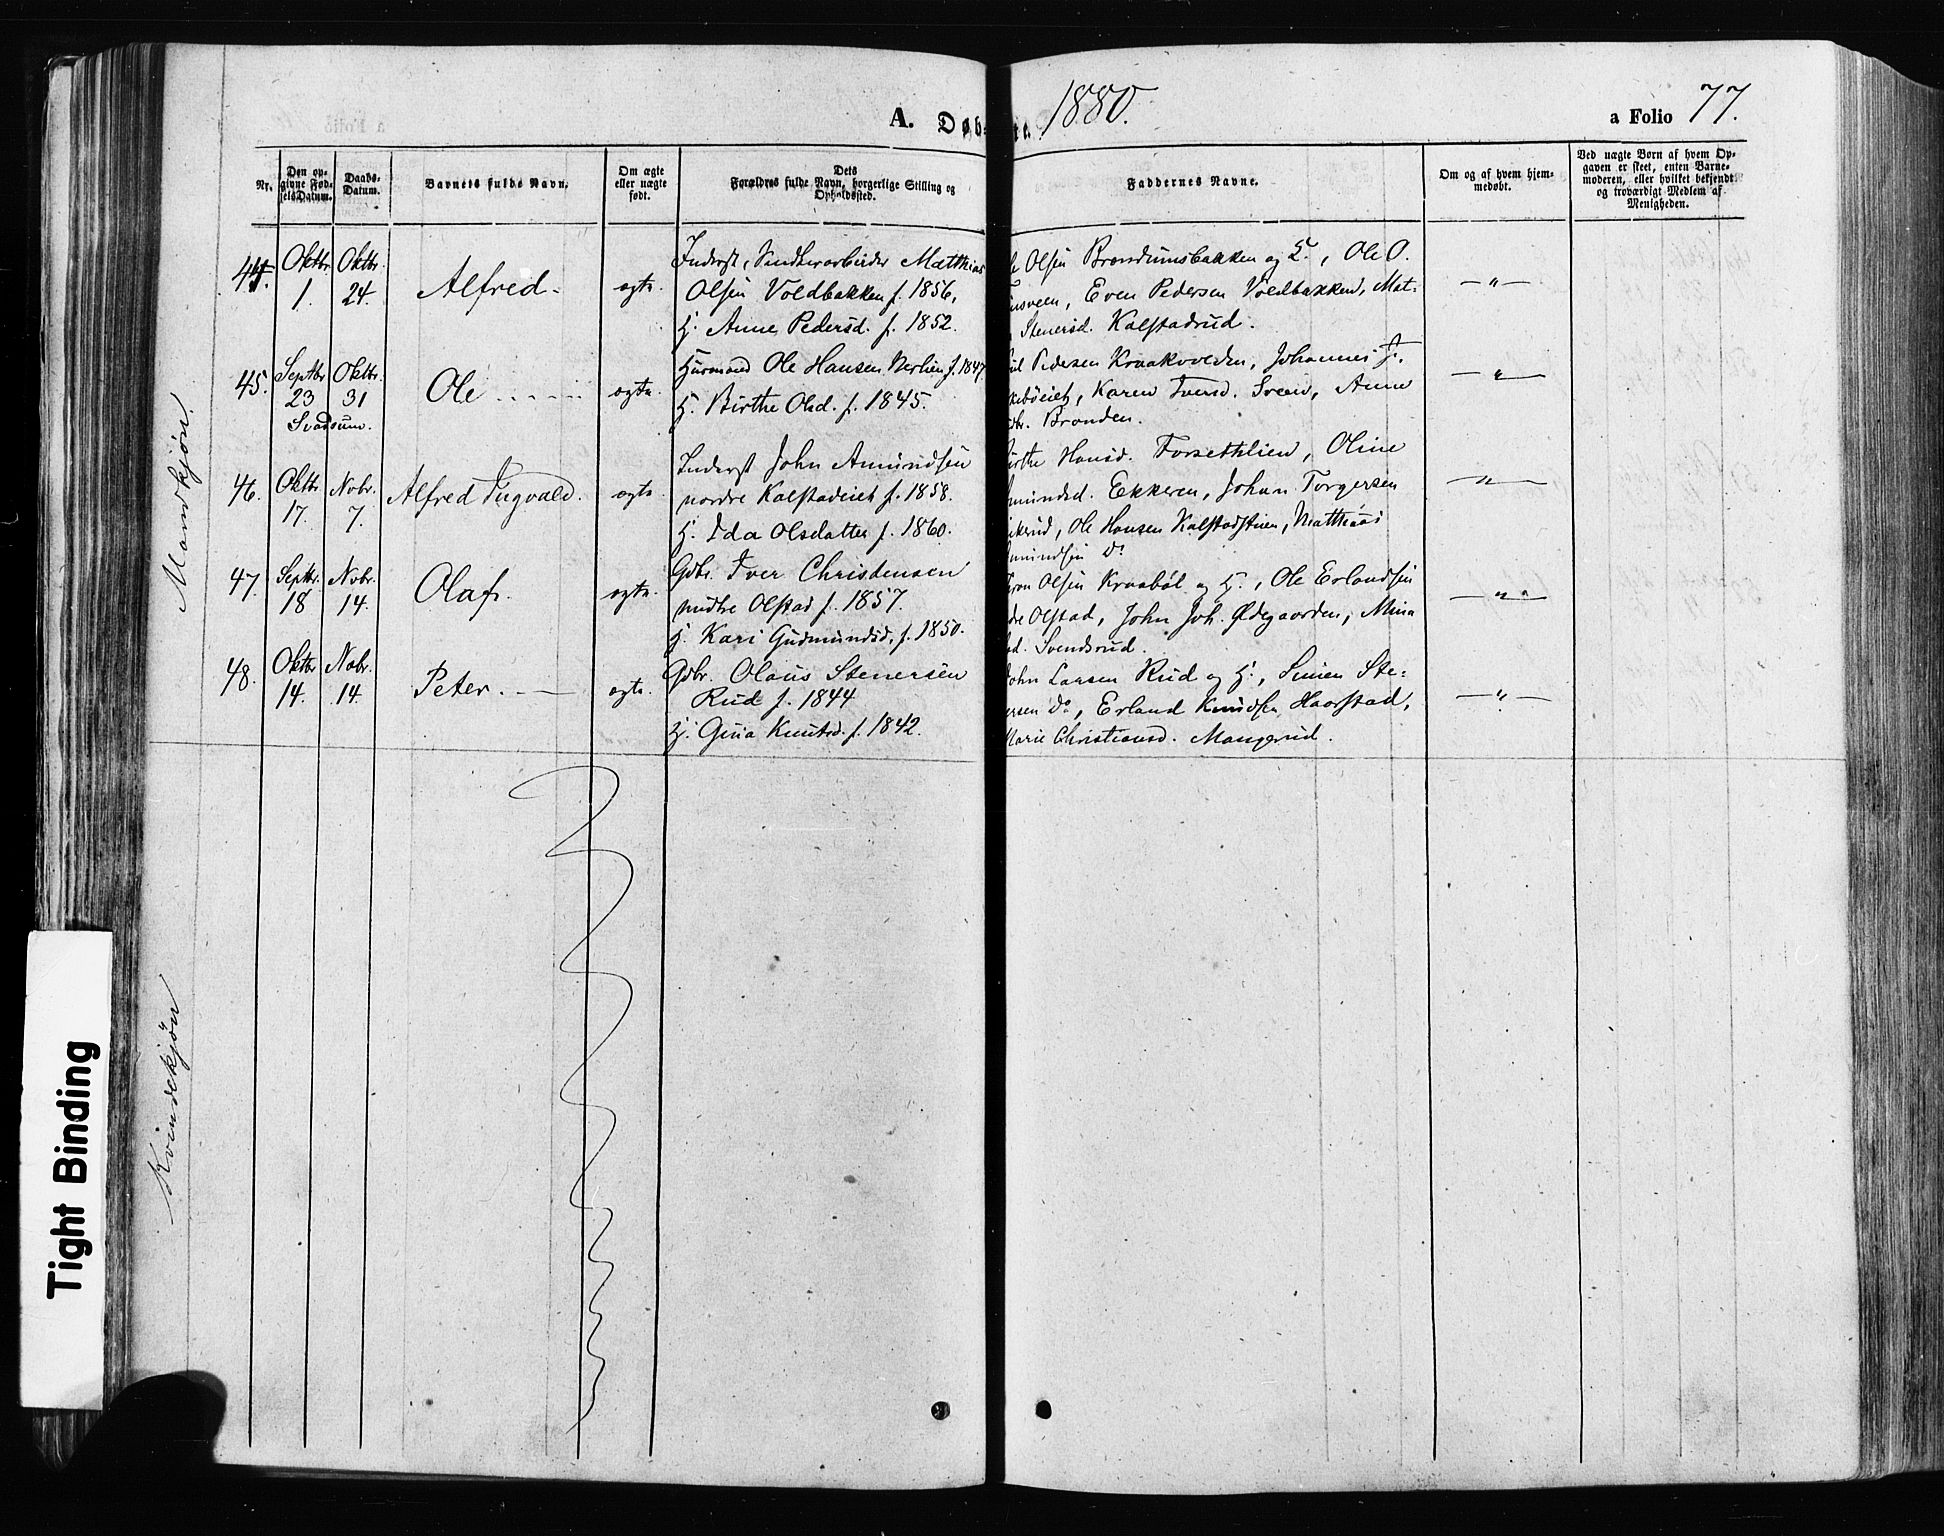 A. Døb
1880.
a Folio 77.
Nr.
Den opgivne Fødsels-Datum.
Daabs-Datum.
Barnets fulde Navn.
Om ægte eller uægte født.
Dets Forældres fulde Navn, borgerlige Stilling og Opholdssted.
Faddernes Navne.
Om og af hvem hjemmedøbt.
Ved uægte Børn af hvem Opgaven er skeet, enten Barnemoderen, eller hvilket bekjendt og troværdigt Medlem af Menigheden.
Mandkjøn.
44. Oktbr. 1. Oktbr. 24. Alfred. ægte.
Inderst, Matthias
Olsen Voldbakken f. 1856,
H. Anne Pedersd. f. 1852.
Olsen Brændumsbakken og H., Ole O.
Even Pedersen Voldbakken, Mat-
Stenersd. Kalstadrud.
— " —
45. Septbr. 23 Oktbr. 31 Svadsum. Ole ægte.
Huusmand Ole Hansen Nerlien f. 1847
H. Birthe Olsd. f. 1845.
Pedersen Kraakvolden, Johannes J.
Karen Iversd. Sveen, Anne
Brænden.
— " —
46. Oktbr. 17. Novbr. 7. Alfred Tingvald. ægte.
Inderst John Amundsen
nordre Kalstadeiet f. 1858.
H. Ida Olsdatter f. 1860.
Hansd. Forsethlien, Oline
Ekkeren, Johan Torgersen
Ole Hansen Kalstadstuen, Matthias
do
— " —
47. Septbr. 18 Novbr. 14. Olaf. ægte.
Gdbr. Iver Christensen
midtre Olstad f. 1857.
H. Kari Gudmundsd. f. 1850.
Olsen Kraabøl og H., Ole Erlandsen
Olstad, John Joh. Ødegaarden, Mina
Svendsrud.
— " —
48. Oktbr. 14. Novbr. 14. Peter. ægte.
Gdbr. Olaus Stenersen
Rud f. 1844
H. Gina Knutsd. f. 1842.
John Larsen Rud og H., Simen Ste-
do, Erland Knudsen Haarstad,
Marie Christiansd. Mangerud.
— " —
Kvindekjøn
Tight Binding